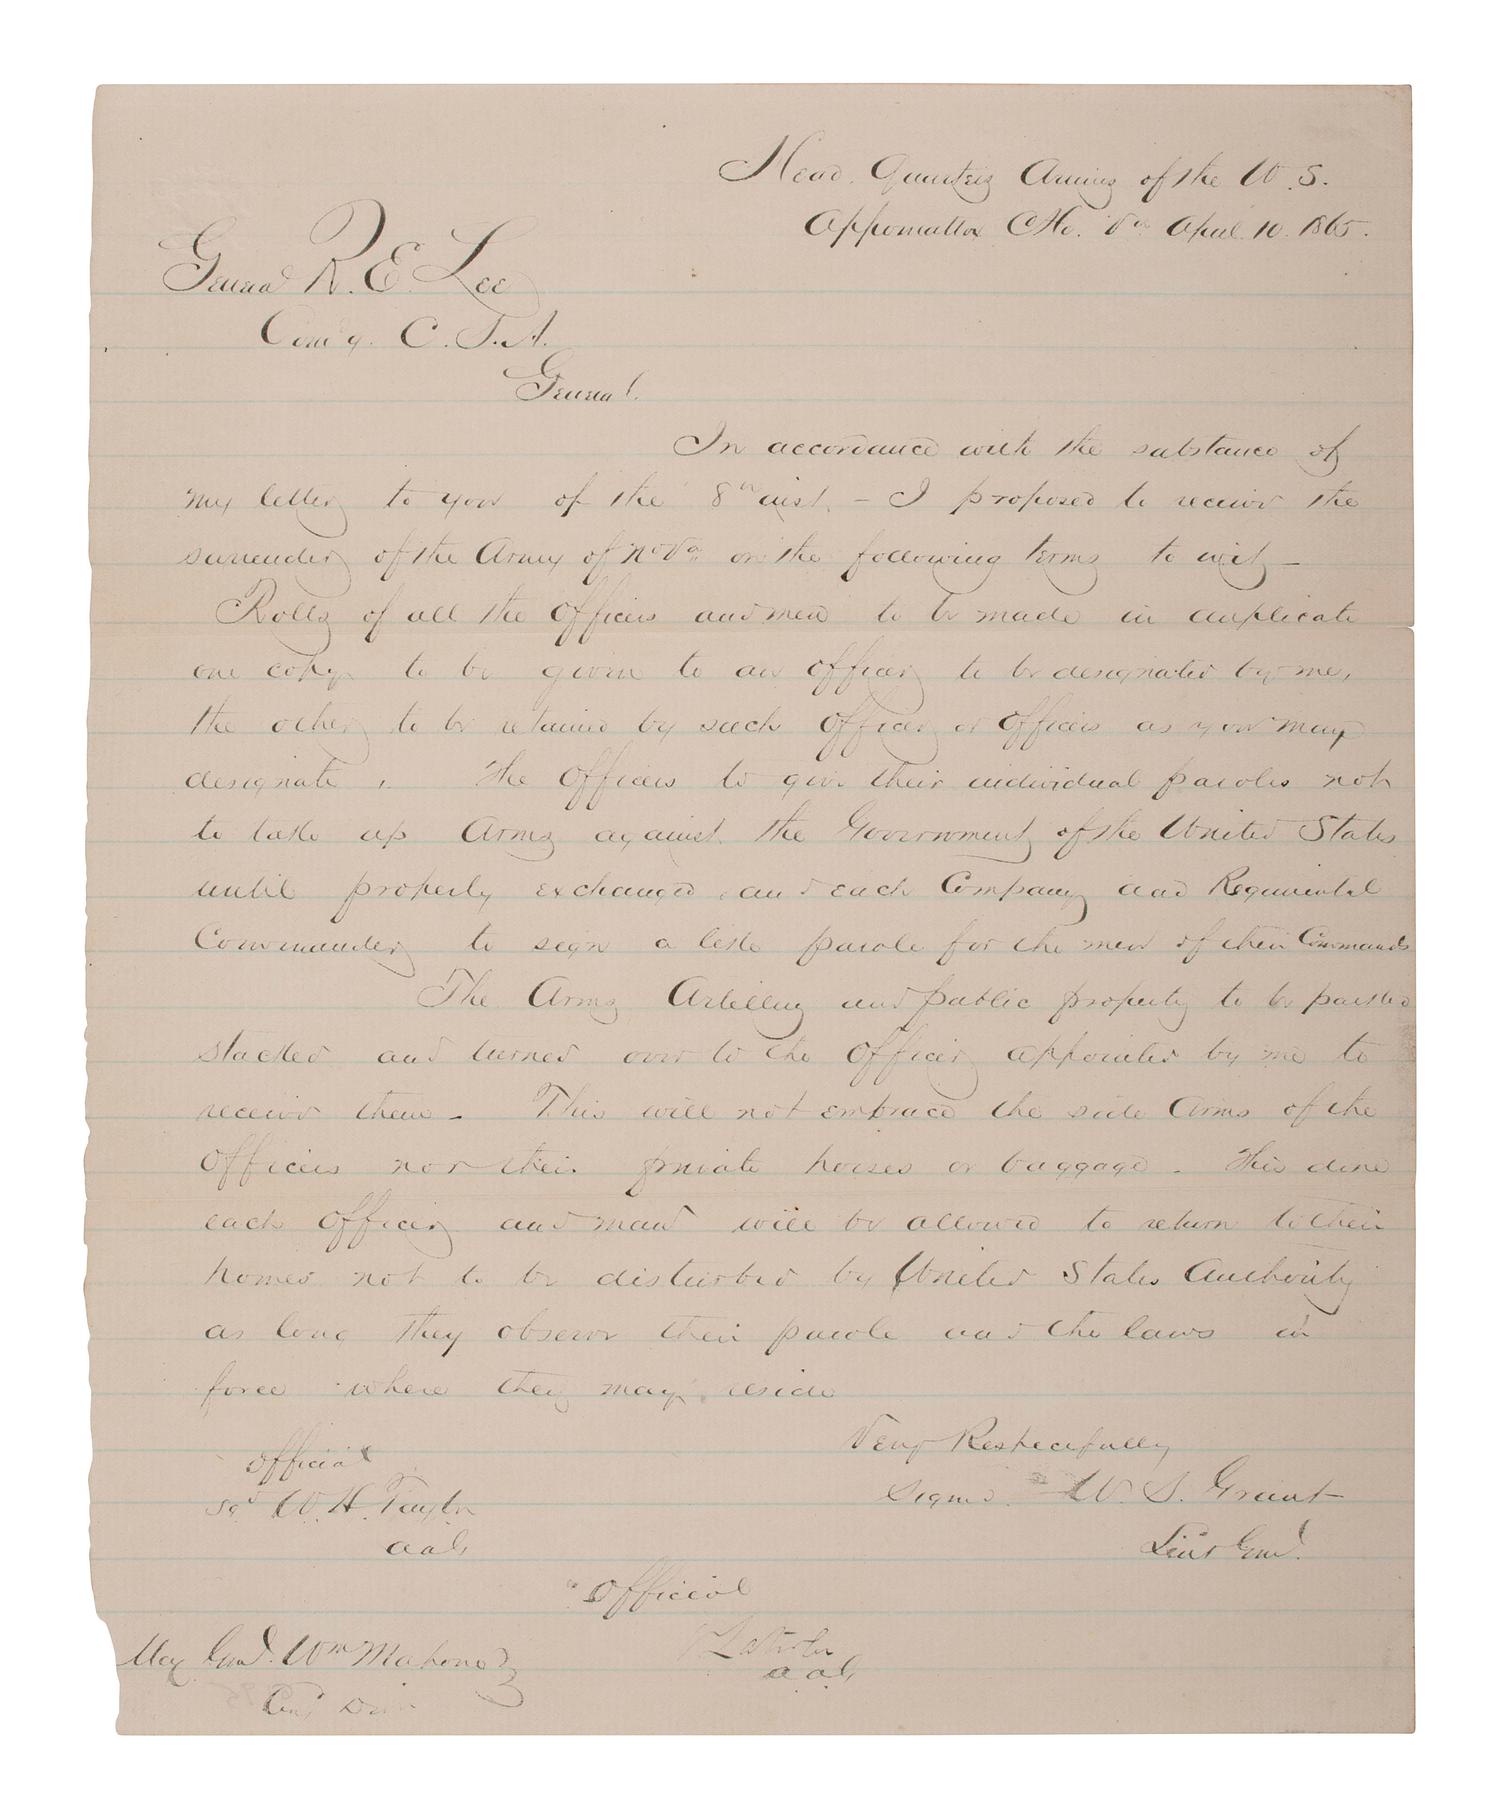 Head Quarters Armies of the U.S.
Appomattox C.Ho. Va April 10. 1865.
General R. E. Lee
Com'g. C. S. A.
General.
In accordance with the substance of
my letter to you of the 8th inst. – I proposed to receive the
surrender of the Army of No Va on the following terms to wit –
Rolls of all the Officers and men to be made in duplicate
one copy to be given to an officer to be designated by me,
the other to be retained by such Officer or Officers as you may
designate. The Officers to give their individual paroles not
to take up Arms against the Government of the United States
until properly exchanged and each Company and Regimental
Commander to sign a like parole for the men of their Commands
The Arms Artillery and public property to be parked
stacked and turned over to the Officer appointed by me to
receive them – This will not embrace the side Arms of the
Officers nor their private horses or baggage. This done
each Officer and man will be allowed to return to their
homes not to be disturbed by United States Authority
as long they observe their parole and the laws in
force where they may reside
Very Respectfully
Official
Signed U. S. Grant
sgd W. H. Taylor
Lieut Genl.
a a G
Official
Maj Genl. Wm Mahone
a a G
Div